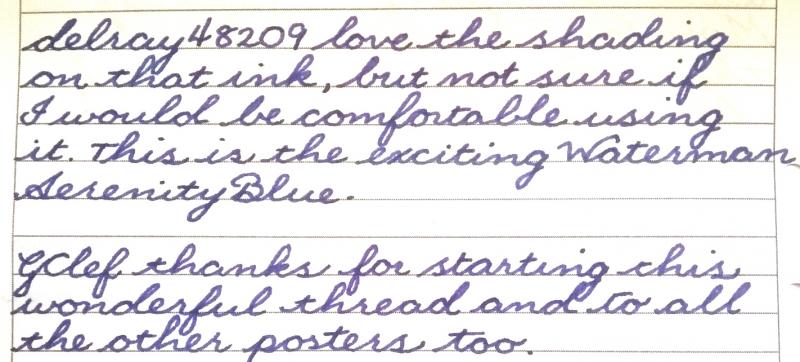 delray48209 love the shading
on that ink, but not sure if
I would be comfortable using
it. This is the exciting Waterman
Serenity Blue.
GClef thanks for starting this
wonderful thread and to all
the other posters too.